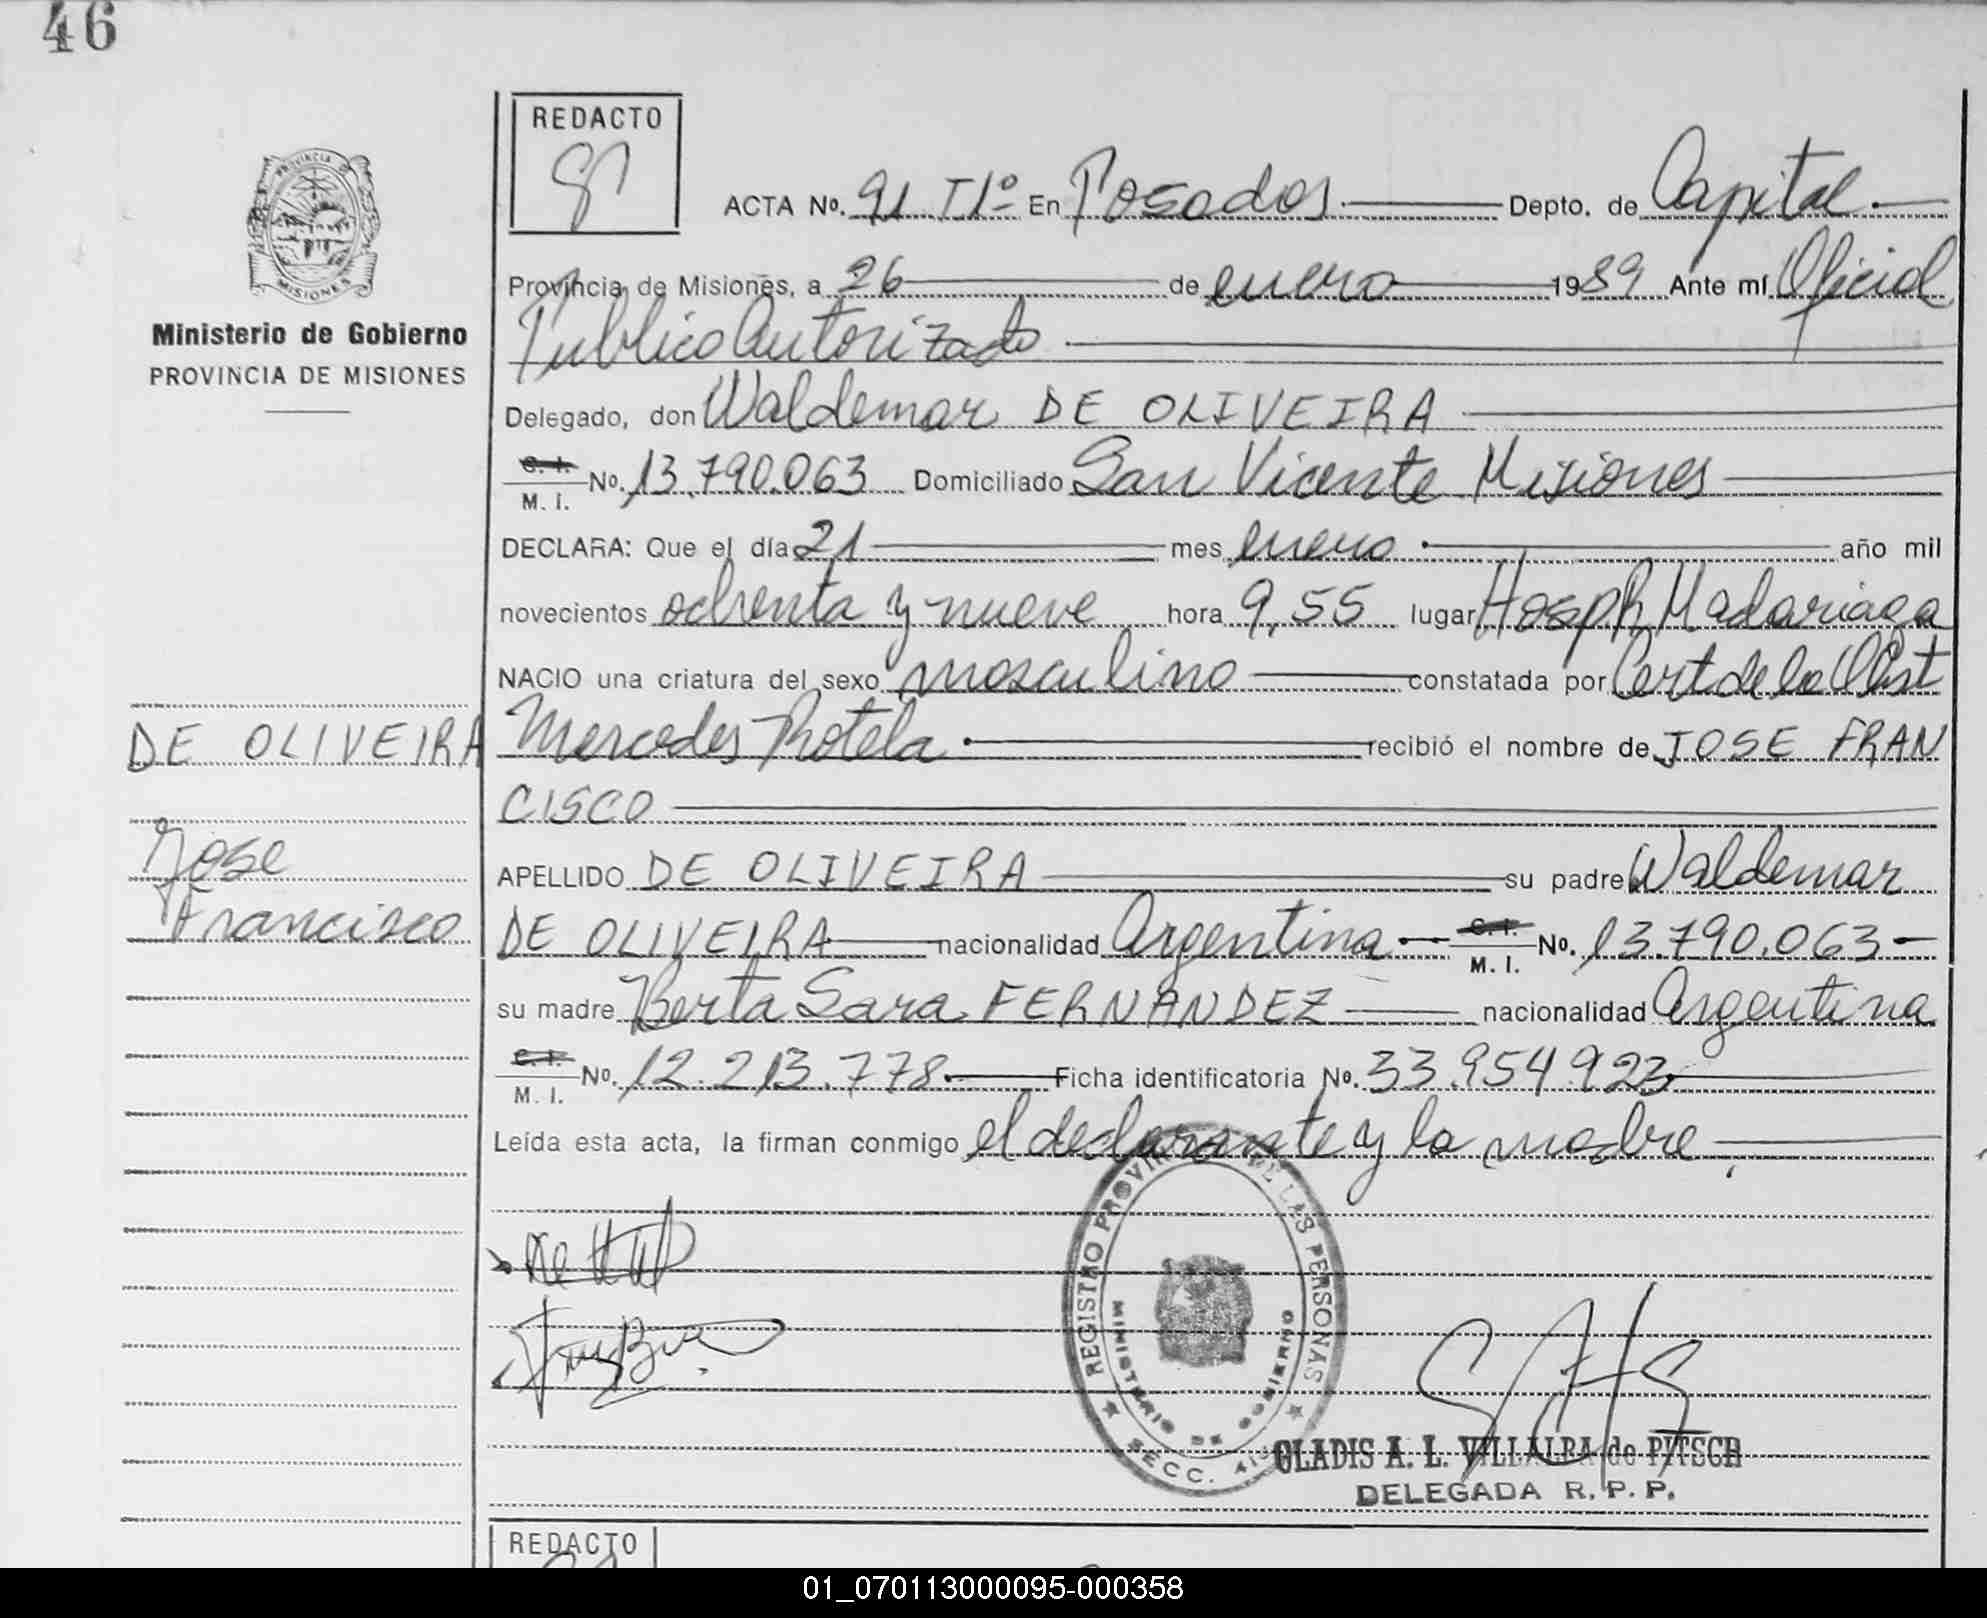 46
REDACTO
ACTA No. 91 T1º En Posadas Depto. de Capital
Provincia de Misiones, a 26 de enero 1989 Ante mí Oficial
Publico Autorizado
Delegado, don Waldemar DE OLIVEIRA
C. I.
M. I. No. 13.790.063 Domiciliado San Vicente Misiones
DECLARA: Que el día 21 mes enero año mil
novecientos ochenta y nueve hora 9,55 lugar Hosp R. Madariaga
NACIO una criatura del sexo masculino constatada por Cert de la Obst
Mercedes Rotela recibió el nombre de JOSE FRAN
CISCO
APELLIDO DE OLIVEIRA su padre Waldemar
DE OLIVEIRA nacionalidad Argentina C. I. M. I. No. 13.790.063
su madre Berta Sara FERNANDEZ nacionalidad Argentina
C. I.
M. I. No. 12.213.778 Ficha identificatoria No. 33.954.923
Leída esta acta, la firman conmigo el declarante y la madre
PROVINCIA DE MISIONES
Ministerio de Gobierno
PROVINCIA DE MISIONES
DE OLIVEIRA
Jose
Francisco
REGISTRO PROVINCIAL DE LAS PERSONAS
MINISTERIO DE GOBIERNO
SECC.
GLADIS A. L. VILLALBA de PITSCH
DELEGADA R. P. P.
REDACTO
01_070113000095-000358